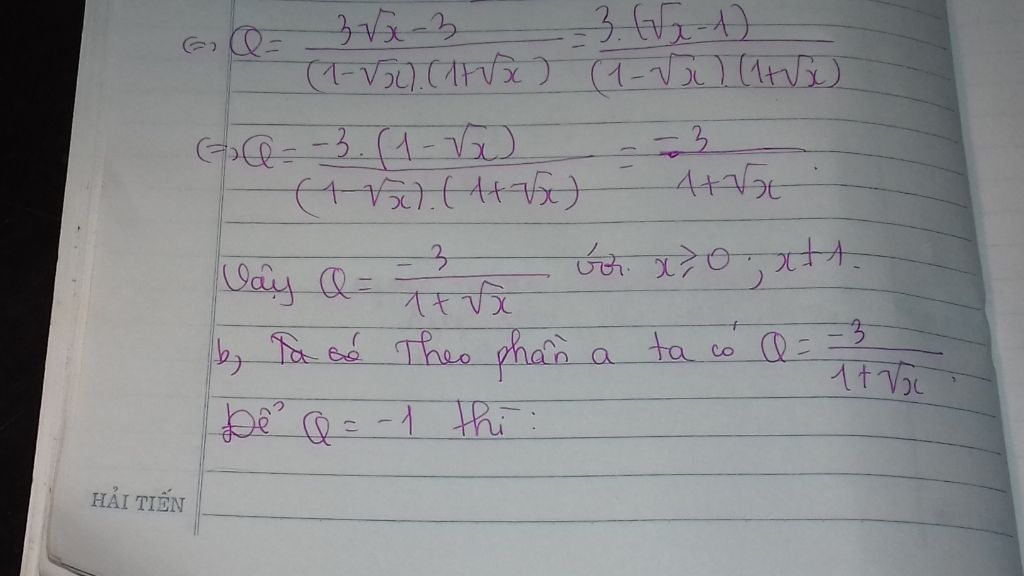 (=) Q = \frac{3\sqrt{x}-3}{(1-\sqrt{x}).(1+\sqrt{x})} = \frac{3.(\sqrt{x}-1)}{(1-\sqrt{x})(1+\sqrt{x})}
(=) Q = \frac{-3.(1-\sqrt{x})}{(1-\sqrt{x}).(1+\sqrt{x})} = \frac{-3}{1+\sqrt{x}}.
Vậy Q = \frac{-3}{1+\sqrt{x}} với x ≥ 0 ; x ≠ 1.
b, Ta có Theo phần a ta có Q = \frac{-3}{1+\sqrt{x}}.
Để Q = -1 thì :
HẢI TIẾN